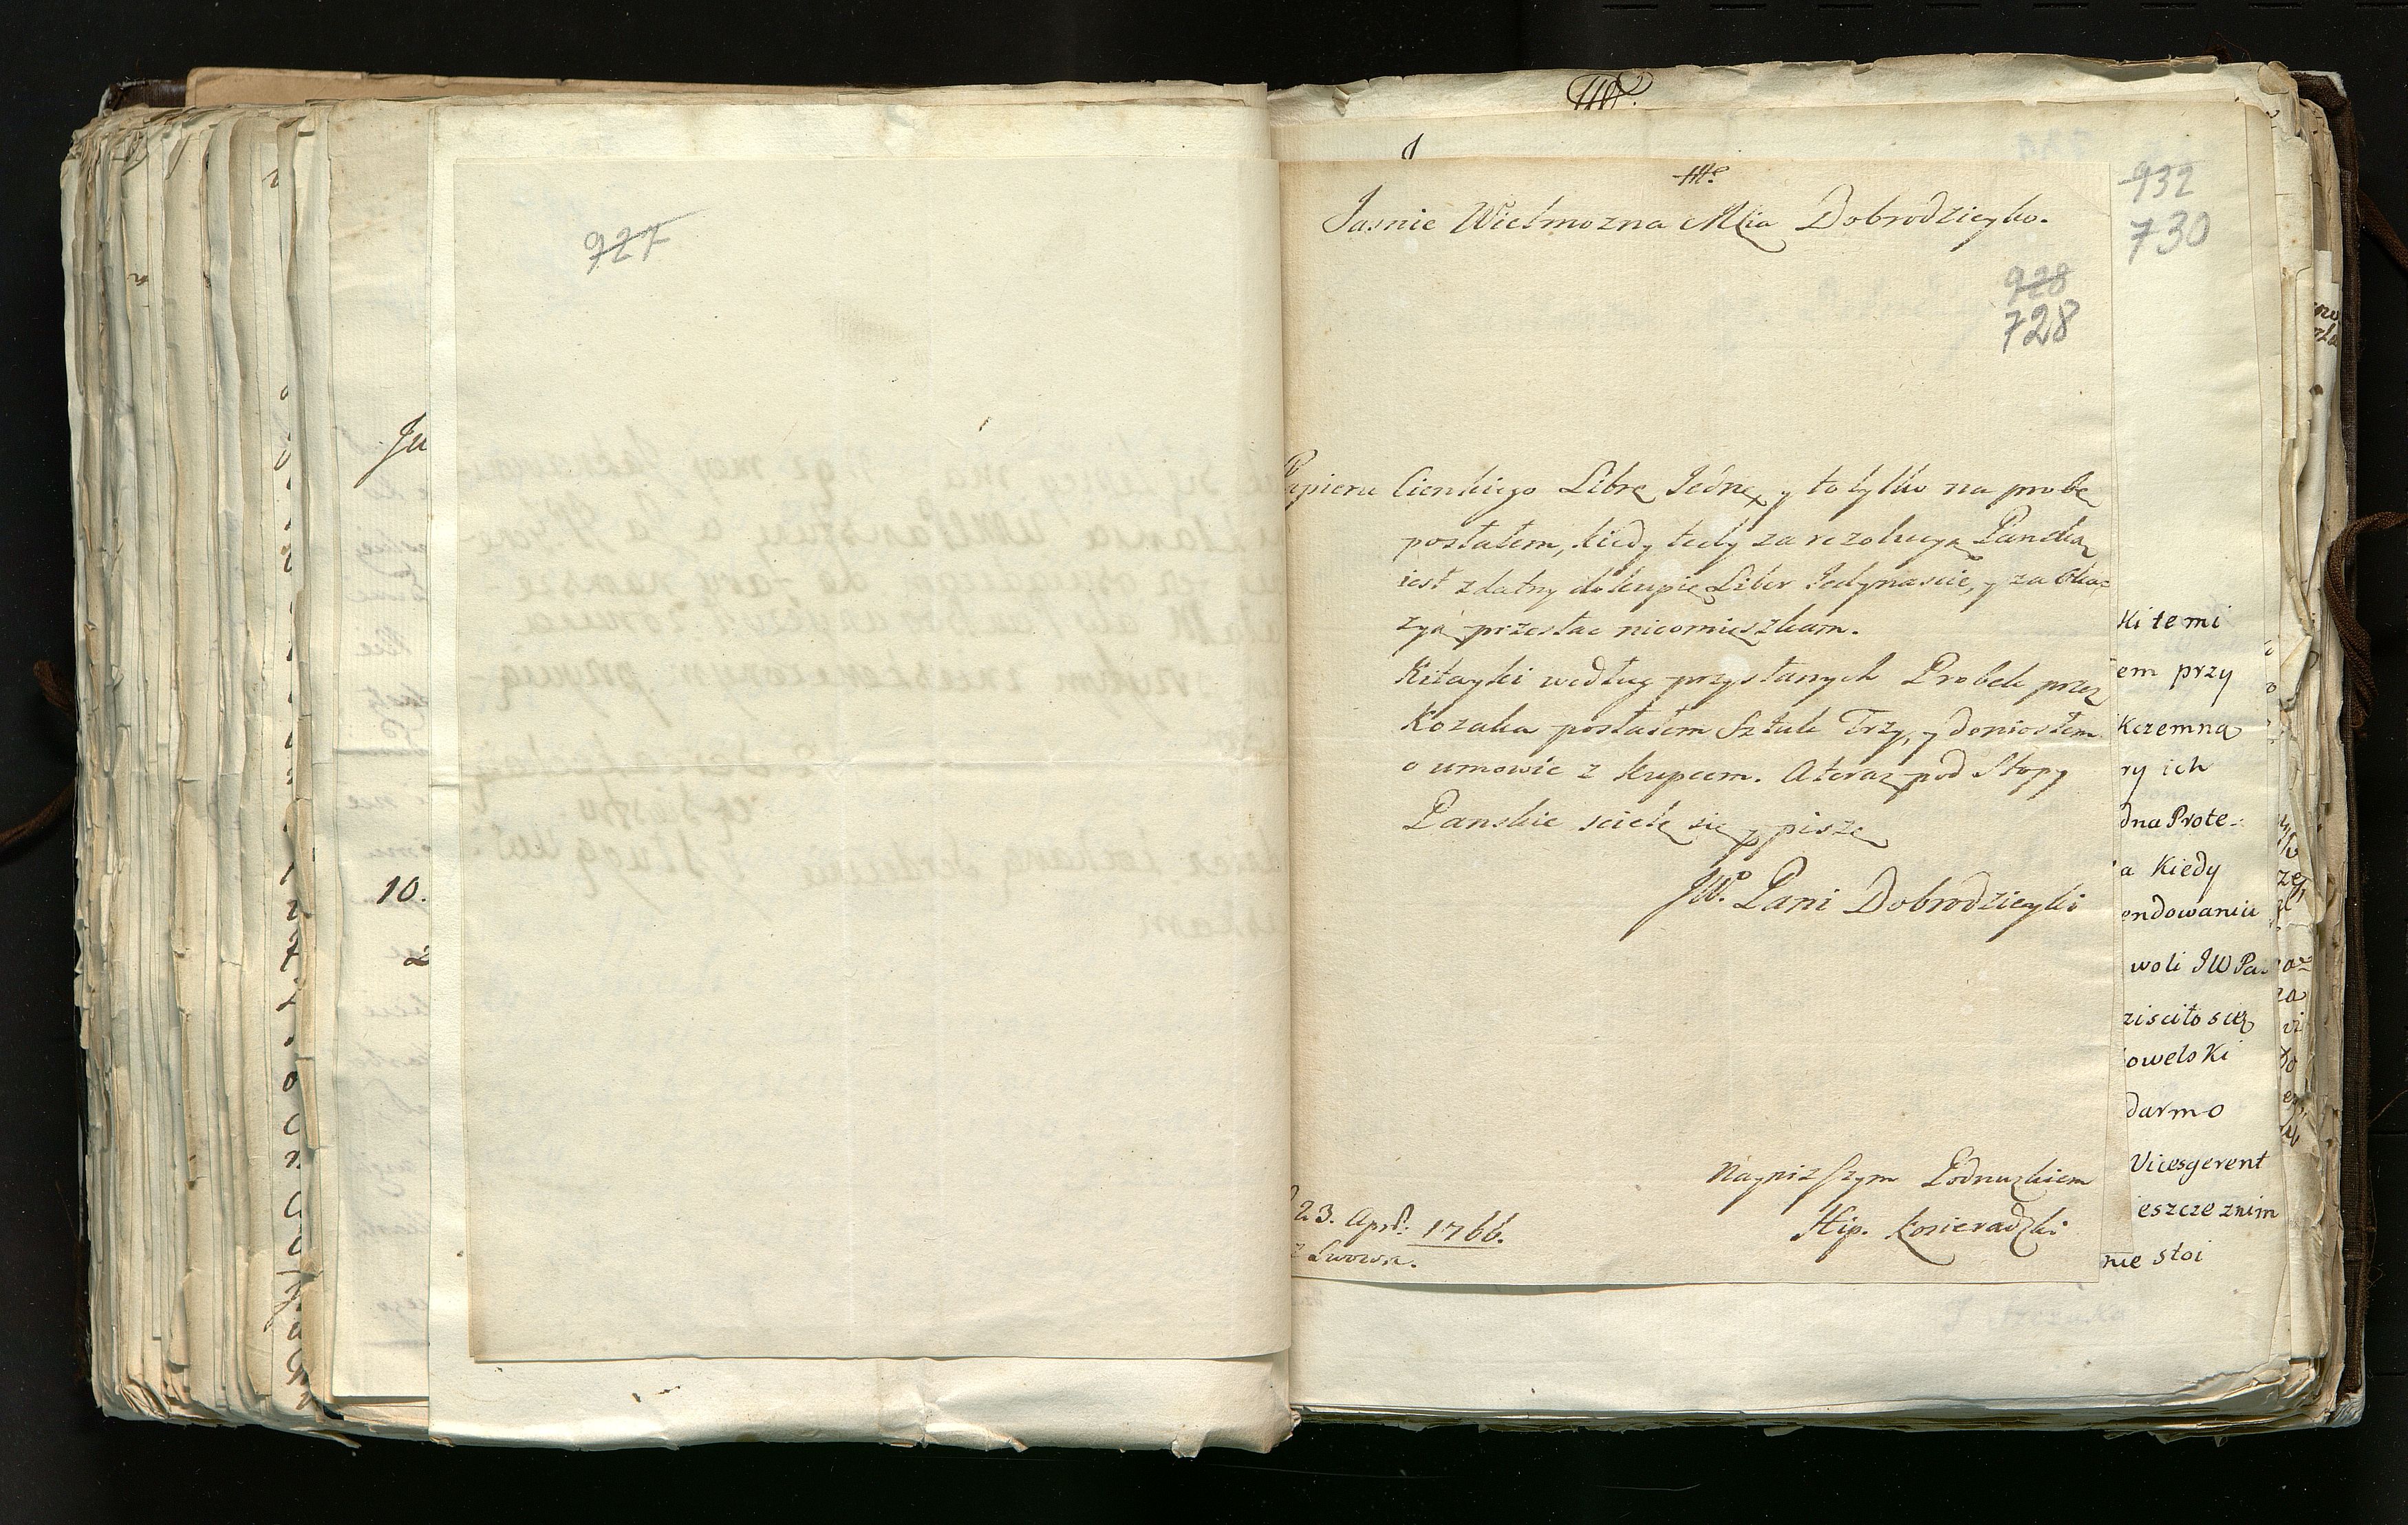 927
Ja
10.
2
932
730
Jasnie Wielmozna Mscia Dobrodzieyko.
928
728
Papieru Cienkiego Librę Jednę, y to tylko na probę
posłałem, kiedy tedy za rezolucyą Panską
iest zdatny dokupię Liber Jedynascie, y za Oka=
zyą przesłac nieomieszkam.
Kitayki według przysłanych Probek przez
Kozaka posłałem Sztuk Trzy, y doniosłem
o umowie z kupcem. A teraz pod Stopy
Panskie scielę się y piszę
JW. Pani Dobrodzieyki
Nayniższym Podnuzkiem
Hip. Kosieradzki
23. Apr. 1766.
z Lwowa.
Ki temi
em przy
Kczemna
ry ich
dna Prote=
a Kiedy
endowaniu
woli JW Pa
ziscito się
owelski
darmo
Vicesgerent
ieszcze znim
nie stoi